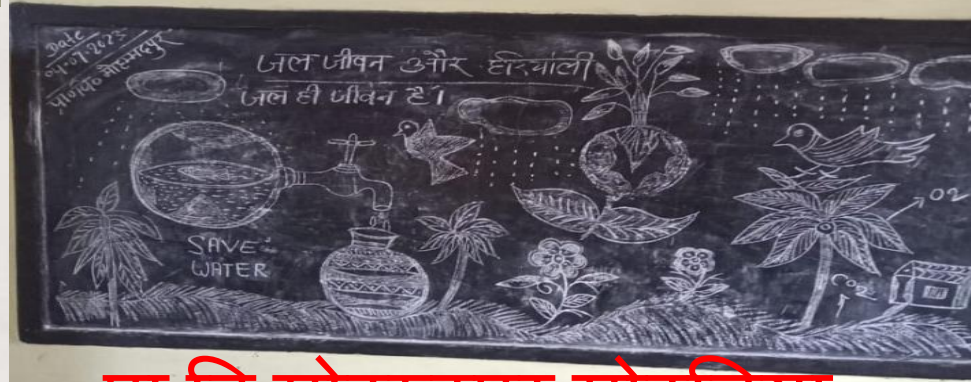 Date
04-07-2025
पा०वि० मोहम्मदपुर
जल जीवन और हरियाली
जल ही जीवन है।
SAVE
WATER
O2
CO2